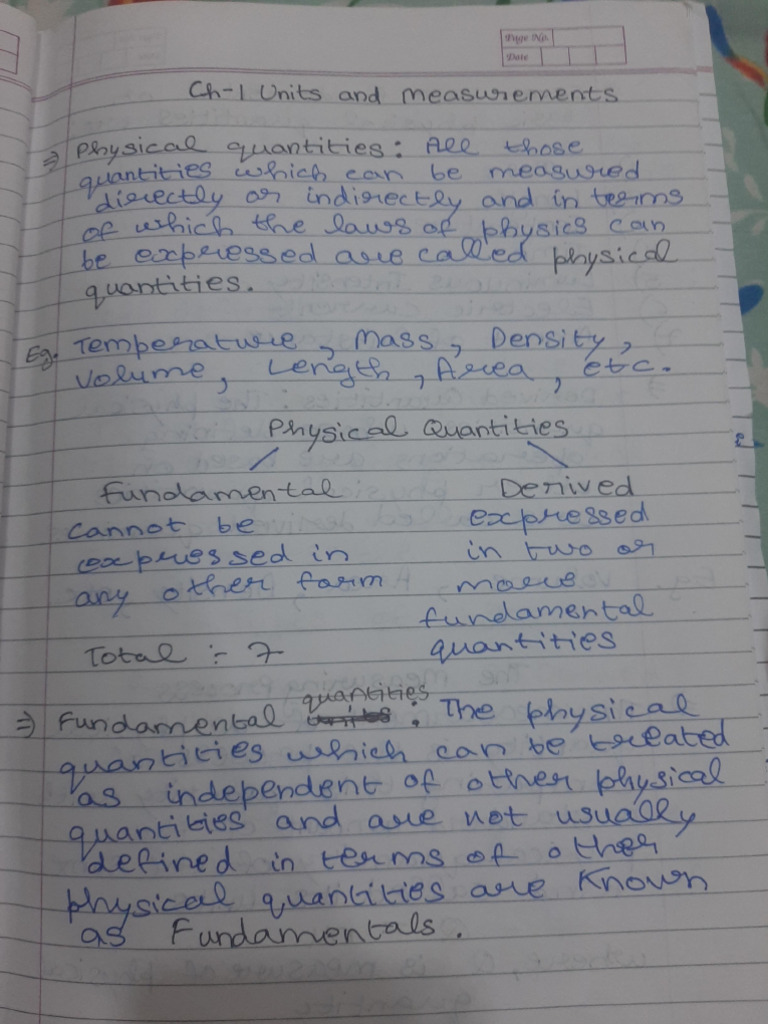 Page No.
Date
Ch-1 Units and measurements
⇒ Physical quantities: All those
quantities which can be measured
directly or indirectly and in terms
of which the laws of physics can
be expressed are called physical
quantities.
Eg. Temperature, Mass, Density,
Volume, Length, Area, etc.
Physical Quantities
Fundamental Derived
cannot be expressed
expressed in in two or
any other form more
fundamental
Total :- 7 quantities
quantities
⇒ Fundamental units: The physical
quantities which can be treated
as independent of other physical
quantities and are not usually
defined in terms of other
physical quantities are known
as Fundamentals.